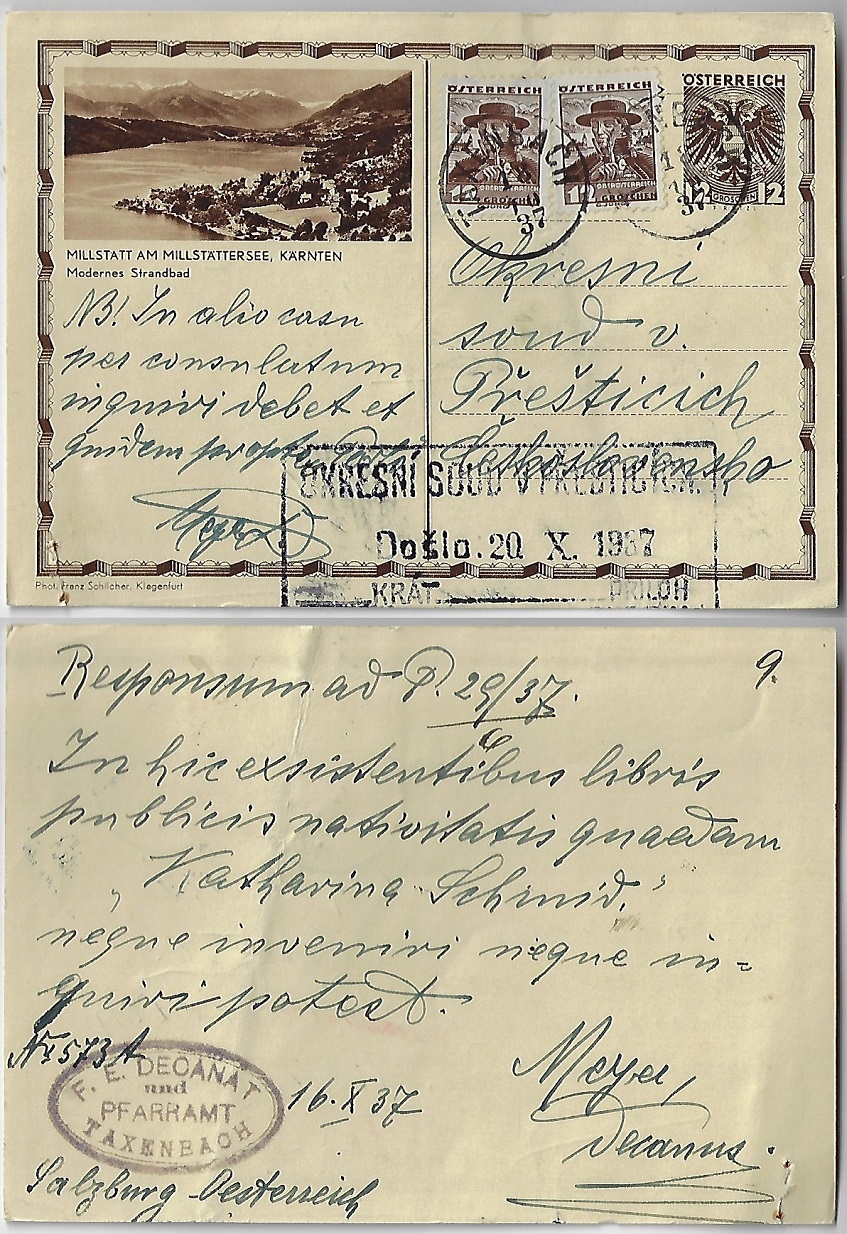 MILLSTATT AM MILLSTÄTTERSEE, KÄRNTEN
Modernes Strandbad
NB! In alio casu
per consulatum
inquiri debet et
quidem propter
Meyer D
Phot. Franz Schilcher, Klagenfurt
ÖSTERREICH
12
OBERÖSTERREICH
GROSCHEN
ÖSTERREICH
12
OBERÖSTERREICH
GROSCHEN
ÖSTERREICH
12 GROSCHEN 12
TAXENBACH
37
37
Okresní
soud v.
Přešticích
Československo
OKRESNÍ SOUD V PŘEŠTICÍCH
Došlo: 20 X. 1937
KRÁT. PŘÍLOH
Responsum ad P. 29/37.
6
9.
In hic exsistentibus libris
publicis nativitatis quaedam
„Katharina Schmid,"
neque inveniri neque in=
quiri potest.
Nr 573 A
F. E. DECANAT
und
PFARRAMT
TAXENBACH
16. X 37
Meyer,
Decanus.
Salzburg Oesterreich